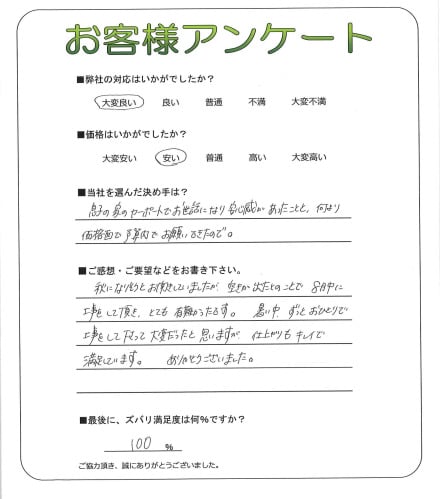 お客様アンケート
■弊社の対応はいかがでしたか？
大変良い 良い 普通 不満 大変不満
■価格はいかがでしたか？
大変安い 安い 普通 高い 大変高い
■当社を選んだ決め手は？
息子の家のカーポートでお世話になり安心感があったことと、何より
価格面で予算内でお願いできたので。
■ご感想・ご要望などをお書き下さい。
秋になりそうとお伺いしていましたが、空きが出たとのことで 8月中に
工事をして頂き、とても 有難かったです。 暑い中、ずっと おひとりで
工事をして下さって 大変だったと 思いますが、仕上がりも キレイで
満足しています。 ありがとうございました。
■最後に、ズバリ満足度は何%ですか？
100 %
ご協力頂き、誠にありがとうございました。